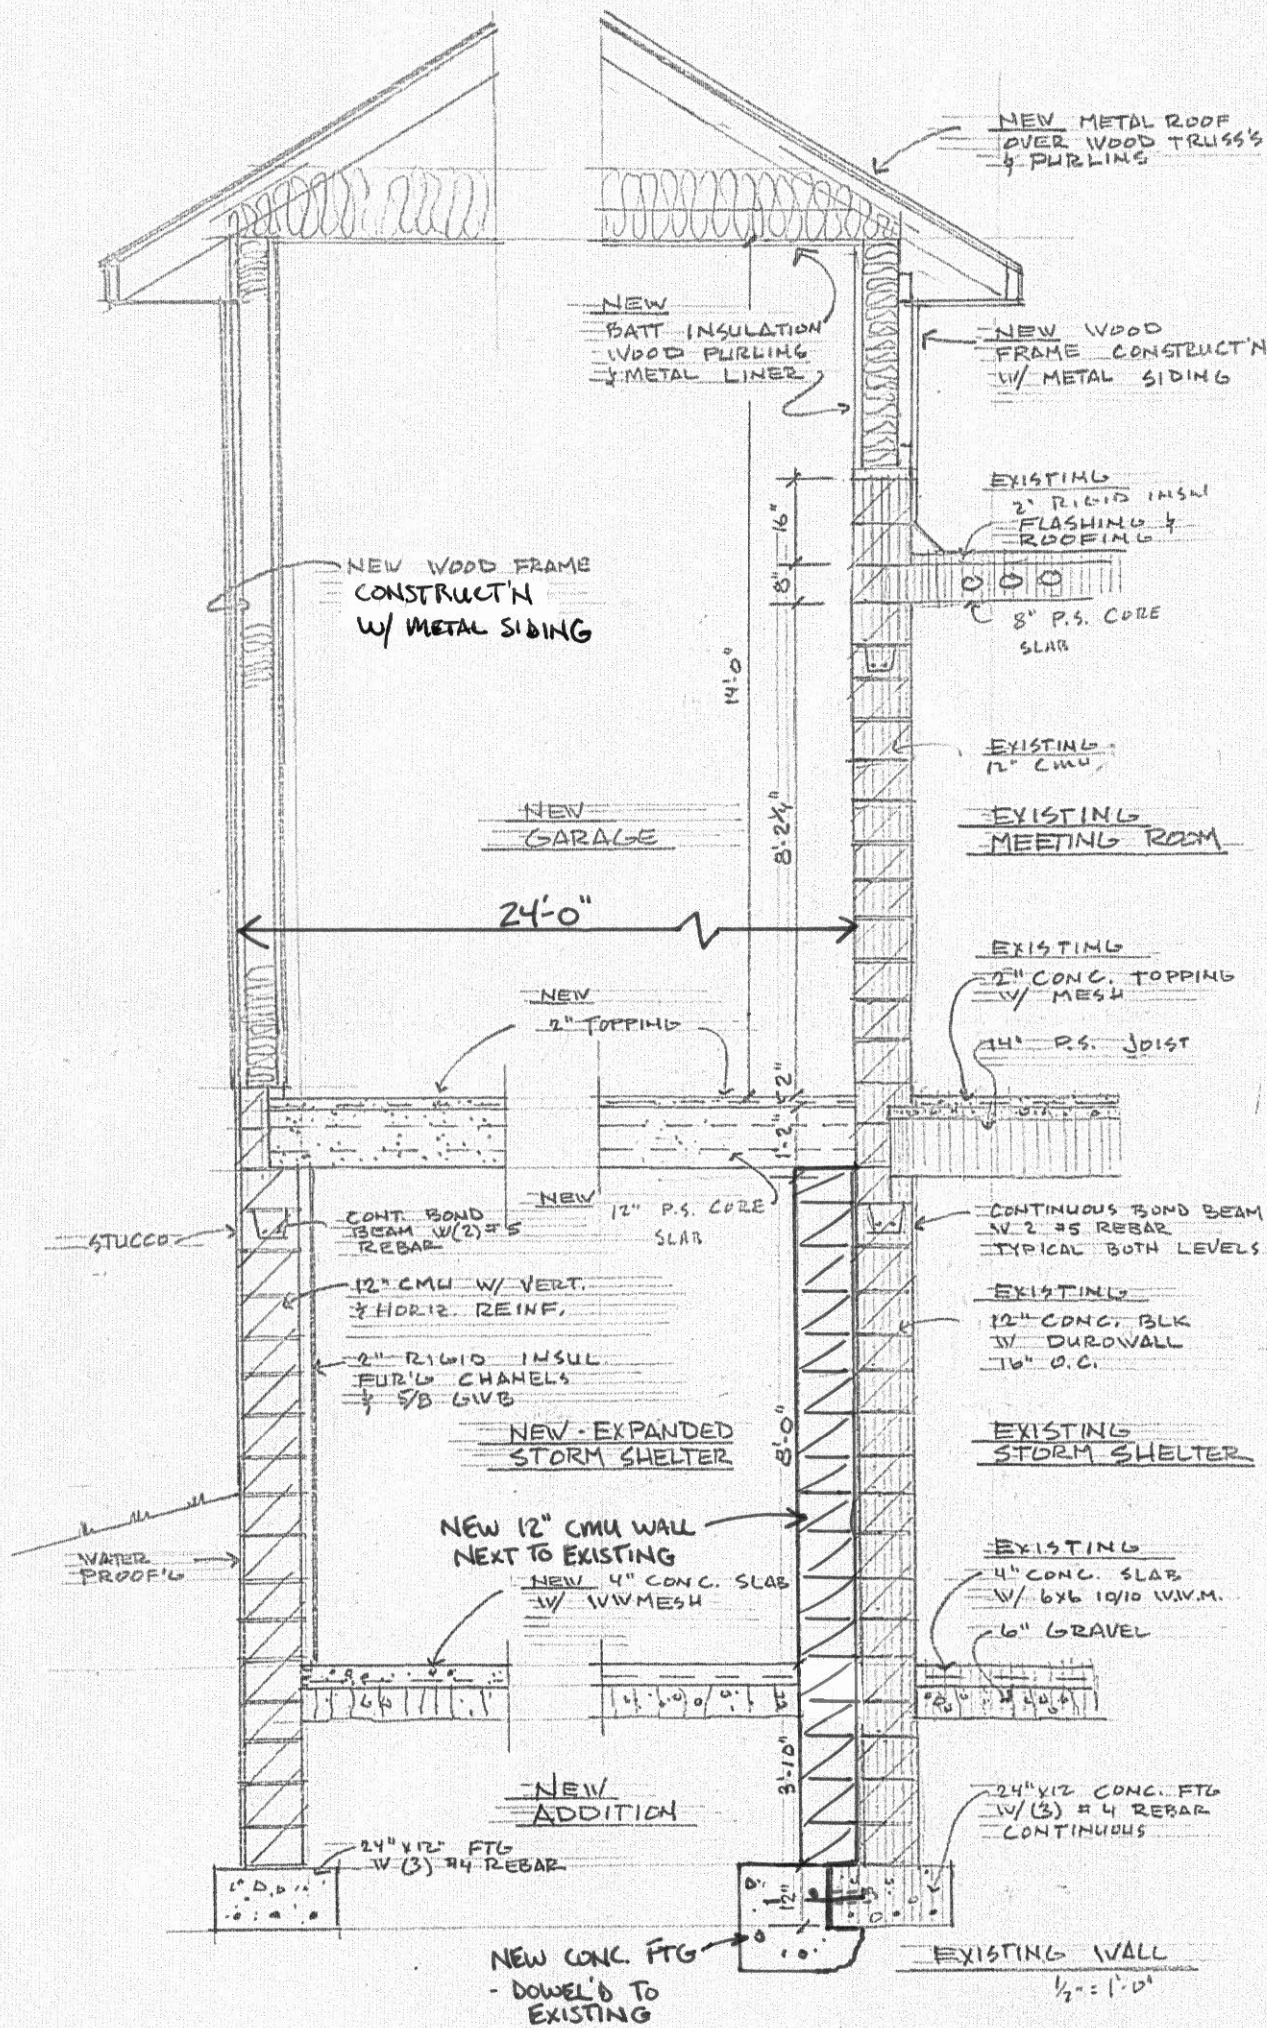 NEW METAL ROOF
OVER WOOD TRUSS'S
& PURLINS
NEW
BATT INSULATION
WOOD PURLING
& METAL LINER
NEW WOOD
FRAME CONSTRUCT'N
W/ METAL SIDING
EXISTING
2" RIGID INSUL
FLASHING &
ROOFING
16"
8"
8" P.S. CORE
SLAB
NEW WOOD FRAME
CONSTRUCT'N
W/ METAL SIDING
14'-0"
EXISTING
12" CMU
NEW
GARAGE
8'-2¼"
EXISTING
MEETING ROOM
24'-0"
EXISTING
2" CONC. TOPPING
W/ MESH
14" P.S. JOIST
NEW
2" TOPPING
2"
1'-2"
NEW
12" P.S. CORE
SLAB
STUCCO
CONT. BOND
BEAM W(2) #5
REBAR
CONTINUOUS BOND BEAM
W 2 #5 REBAR
TYPICAL BOTH LEVELS
12" CMU W/ VERT.
& HORIZ. REINF.
EXISTING
12" CONC. BLK
W DUROWALL
16" O.C.
2" RIGID INSUL
FUR'G CHANELS
& 5/8 GWB
NEW - EXPANDED
STORM SHELTER
8'-0"
EXISTING
STORM SHELTER
NEW 12" CMU WALL
NEXT TO EXISTING
WATER
PROOF'G
NEW 4" CONC. SLAB
W/ WWMESH
EXISTING
4" CONC. SLAB
W/ 6X6 10/10 W.W.M.
6" GRAVEL
3'-10"
NEW
ADDITION
24" X 12" FTG
W (3) #4 REBAR
24" X12 CONC. FTG
W/(3) #4 REBAR
CONTINUOUS
12"
NEW CONC. FTG
- DOWEL'D TO
EXISTING
EXISTING WALL
½" = 1'-0"